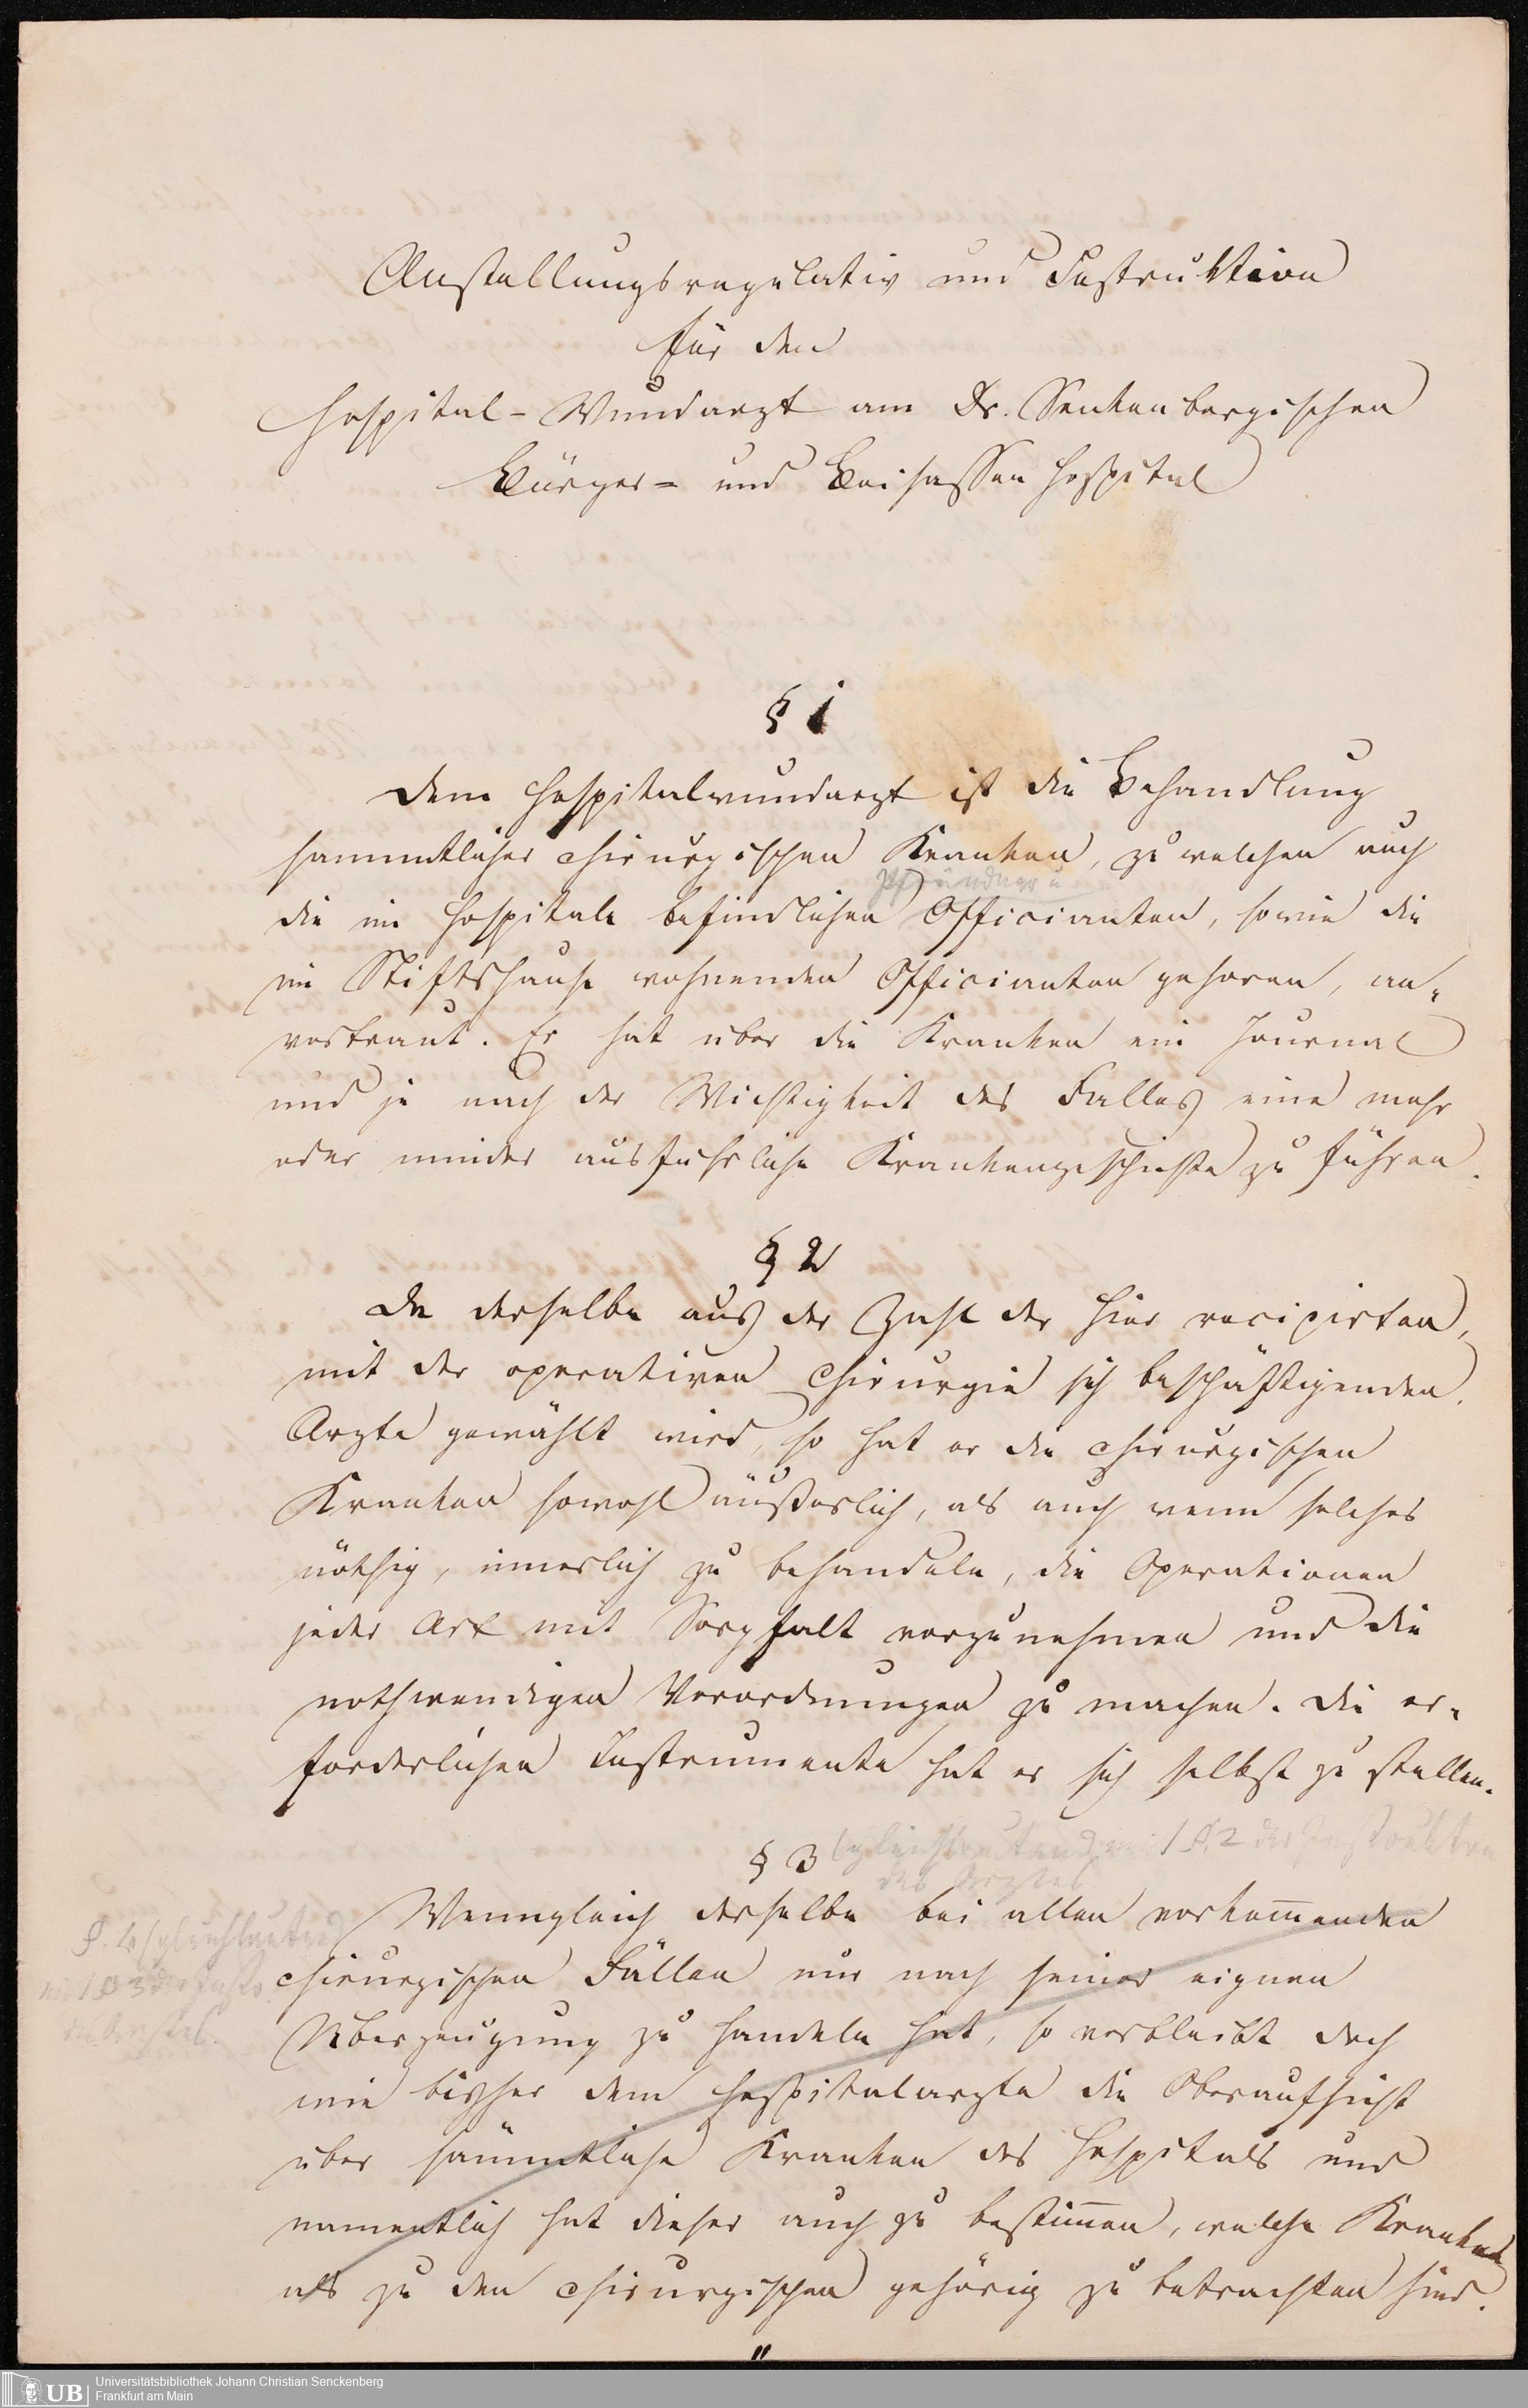 Anstellungsregulativ und Instruktion
für den
Hospital-Wundarzt am Dr. Senkenbergischen
Bürger- und Beisassen Hospital
§ 1
Dem Hospitalwundarzt ist die Behandlung
sammtlicher chirurgischen Kranken, zu welchen auch
Pfründner u
die im Hospitale befindlichen Officianten, sowie die
im Stiftshause wohnenden Officianten gehoren, an-
vertraut. Er hat über die Kranken ein Journal
und je nach der Wichtigkeit des Falles eine mehr
oder minder ausfuhrliche Krankengeschichte zu führen.
§ 2
Da derselbe aus der Zahl der hier recipirten,
mit der operativen Chirurgie sich beschäftigenden
Arzte gewählt wird, so hat er die chirurgischen
Kranken sowohl äußerlich, als auch wenn solches
nöthig, innerlich zu behandeln, die Operationen
jeder Art mit Sorgfalt vorzunehmen und die
nothwendigen Verordnungen zu machen. Die er-
forderlichen Instrumente hat er sich selbst zu stellen.
§ 3 (gleichlautend mit § 2 der Instruktion
des Arztes
Wenngleich derselbe bei allen vorkom̅enden
§. 4 (gleichlautend
chirurgischen Fällen nur nach seiner eignen
mit § 3 der Instr.
Überzeugung zu handeln hat, so verbleibt doch
des Arztes.
wie bisher dem Hospitalarzte die Oberaufsicht
über sämmtliche Kranken des Hospitals und
namentlich hat dieser auch zu bestim̅en, welche Kranken
als zu den chirurgischen gehörig zu betrachten sind.
Universitätsbibliothek Johann Christian Senckenberg
Frankfurt am Main
UB